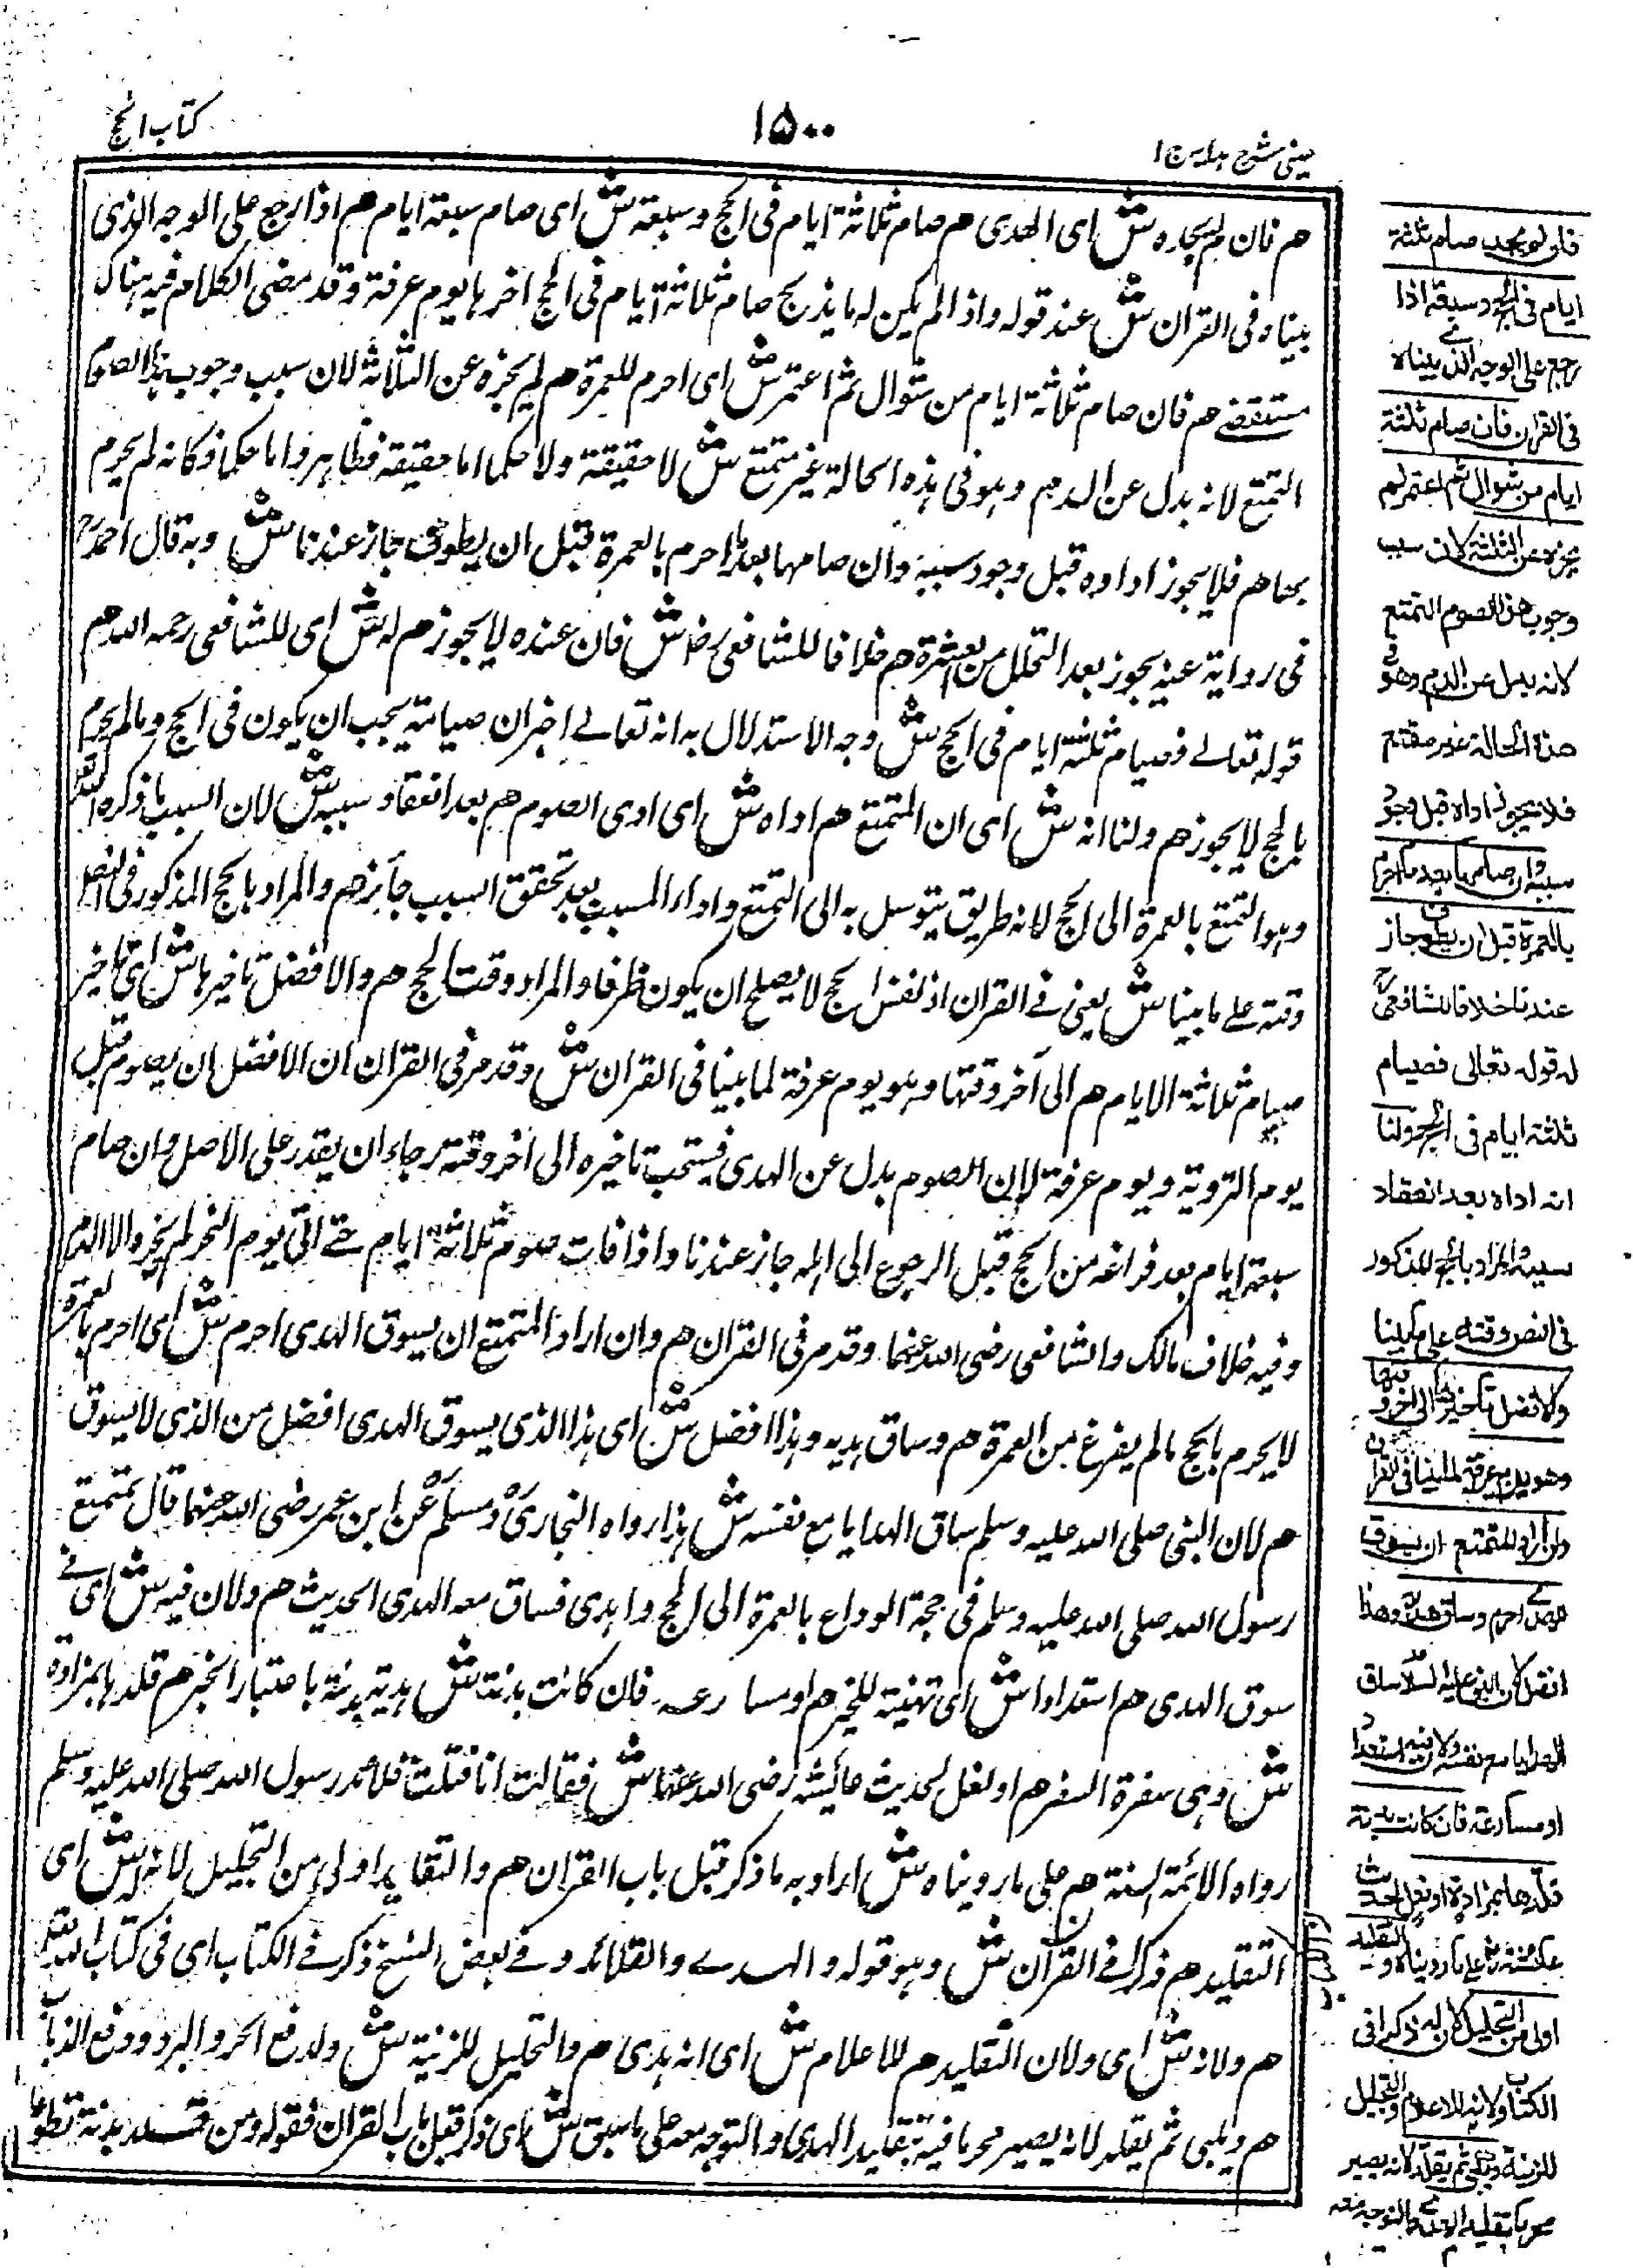 كتاب الحج
١٥٠٠
عينى شرح هدايه ج ١
هم فان لم يجده ش اى الهدى هم صام ثلاثة ايام فى الحج وسبعة ش اى صام سبعة ايام هم اذا رجع على الوجه الذى
بيناه فى القران ش عند قوله واذا لم يكن له ما يذبح صام ثلاثة ايام فى الحج اخرها يوم عرفة وقد مضى الكلام فيه هناك
مستقصے هم فان صام ثلاثة ايام من شوال ثم اعتمر ش اى احرم للعمرة هم لم يجزه عن الثلاثة لان سبب وجوب هذا الصوم
التمتع لانه بدل عن الدم وهو فى هذه الحالة غير متمتع ش لا حقيقة ولا حكما اما حقيقة فظاهر واما حكما فكانه لم يحرم
بها هم فلا يجوز اداوه قبل وجود سببه وان صامها بعد ما احرم بالعمرة قبل ان يطوف جاز عندنا ش وبه قال احمدؒ
فى رواية عنه يجوز بعد التحلل من العمرة هم خلافا للشافعىؒ ش فان عنده لا يجوز هم له ش اى للشافعى رحمه الله هم
قوله تعالے فصيام ثلثة ايام فى الحج ش وجه الاستدلال به انه تعالے اخبر ان صيامه يجب ان يكون فى الحج وما لم يحرم
بالحج لا يجوز هم ولنا انه ش اى ان المتمتع هم اداه ش اى ادى الصوم هم بعد انعقاد سببه ش لان السبب ما ذكره الله تعالى
وهو التمتع بالعمرة الى الحج لانه طريق يتوسل به الى التمتع واداء المسبب بعد تحقق السبب جائز هم والمراد بالحج المذكور فى النص
وقته على ما بينا ش يعنى فے القران اذ نفس الحج لا يصلح ان يكون ظرفا والمراد وقت الحج هم والافضل تاخيرها ش اى تاخير
صيام ثلاثة الايام هم الى آخر وقتها وهو يوم عرفة لما بينا فى القران ش وقد مر فى القران ان الافضل ان يصوم قبل
يوم التروية ويوم عرفة لان الصوم بدل عن الهدى فيستحب تاخيره الى اخر وقته رجاء ان يقدر على الاصل وان صام
سبعة ايام بعد فراغه من الحج قبل الرجوع الى اهله جاز عندنا واذا فات صوم ثلاثة ايام حتے اتى يوم النحر لم يجزه الا الدم
وفيه خلاف مالك والشافعى رضى الله عنهما وقد مر فى القران هم وان اراد المتمتع ان يسوق الهدى احرم ش اى احرم بالعمرة
لا يحرم بالحج ما لم يفرغ من العمرة هم وساق هديه وهذا افضل ش اى هذا الذى يسوق الهدى افضل من الذى لا يسوق
هم لان النبى صلى الله عليه وسلم ساق الهدايا مع نفسه ش هذا رواه البخارى ومسلم عن ابن عمر رضى الله عنهما قال تمتع
رسول الله صلى الله عليه وسلم فى حجة الوداع بالعمرة الى الحج واهدى فساق معه الهدى الحديث هم ولان فيه ش اى فے
سوق الهدى هم استعدادا ش اى تهيئة للخير هم ومسارعة فان كانت بدنة ش هدية بدنة باعتبار الخبر هم قلدها بمزادة
ش وهى سفرة السفر هم او نعل لحديث عائشة رضى الله عنها ش فقالت انا فتلت قلائد رسول الله صلى الله عليه وسلم
رواه الائمة الستة هم على ما رويناه ش اراد به ما ذكر قبل باب القران هم والتقليد اولى من التجليل لانه له ش اى
التقليد هم ذكرا فے القرآن ش وهو قوله والهدے والقلائد وفے بعض النسخ ذكر فے الكتاب اى فى كتاب الله تعالى
هم ولانه ش اى ولان التقليد هم للاعلام ش اى انه هدى هم والتجليل للزينة ش ولدفع الحر والبرد ودفع الذباب
هم ويلبى ثم يقلد لانه يصير محرما فيه بتقليد الهدى والتوجه معه على ما سبق ش اى ذكر قبل باب القران فقوله ومن قلد بدنة تطوعا
فان لم يجد صام ثلثة
ايام فى الحج وسبعة اذا
رجع على الوجه الذے بيناه
فى القران فان صام ثلثة
ايام من شوال ثم اعتمر لم
يجزه عن الثلثة لان سبب
وجوب هذا الصوم التمتع
لانه بدل عن الدم وهو فے
هذه الحالة غير متمتع
فلا يجوز اداه قبل وجود
سببه وان صامها بعد ما احرم
بالعمرة قبل ان يطوف جاز
عندنا خلافا للشافعىؒ
له قوله تعالى فصيام
ثلثة ايام فى الحج ولنا
انه اداه بعد انعقاد
سببه والمراد بالحج المذكور
فى النص وقته على ما بينا
والافضل تاخيرها الى اخر وقتها
وهو يوم عرفة لما بينا فى القران
وان اراد المتمتع ان يسوق
الهدے احرم وساق هديه وهذا
افضل لان النبى عليه السلام ساق
الهدايا مع نفسه ولان فيه استعدادا
ومسارعة فان كانت بدنة
قلدها بمزادة او نعل لحديث
عائشة رض على ما رويناه والتقليد
اولى من التجليل لان له ذكرا فى
الكتاب ولانه للاعلام والتجليل
للزينة ويلبى ثم يقلد لانه يصير
محرما بتقليد الهدے والتوجه معه